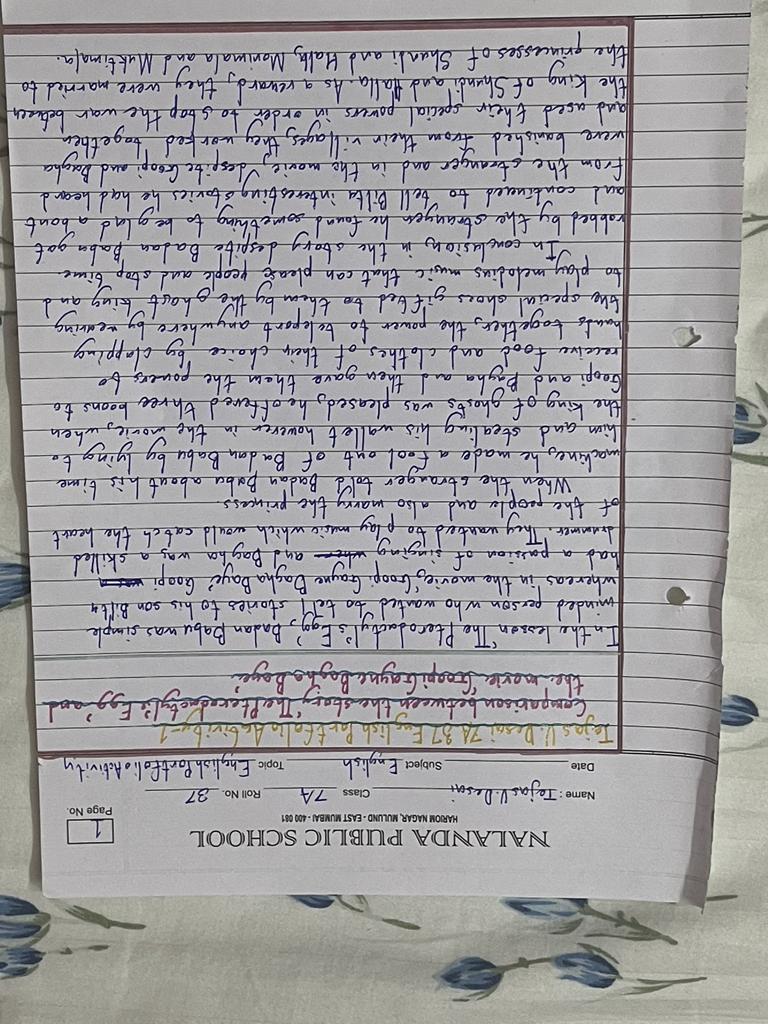 NALANDA PUBLIC SCHOOL
HARIOM NAGAR, MULUND - EAST MUMBAI - 400 081
1
Page No.
Name: Tejas V. Desai Class 7A Roll No. 37
Date Subject English Topic English Portfolio Activity
Tejas V. Desai 7A 37 English Portfolio Activity-1
Comparison between the story 'The Pterodactyl's Egg' and
the movie 'Goopi Gayne Bagha Baye'
In the lesson 'The Pterodactyl's Egg', Badan Babu was simple
minded person who wanted to tell stories to his son Biltu
whereas in the movie, 'Goopi Gayne Bagha Baye' Goopi
had a passion of singing and Bagha was a skilled
drummer. They wanted to play music which would catch the heart
of the people and also marry the princess.
When the stranger told Badan Babu about his time
machine, he made a fool out of Badan Babu by lying to
him and stealing his wallet however in the movie, when
the king of ghosts was pleased, he offered three boons to
Goopi and Bagha and then gave them the powers to
receive food and clothes of their choice by clapping
hands together, the power to teleport anywhere by wearing
the special shoes gifted to them by the ghost king and
to play melodius music that can please people and stop time.
In conclusion, in the story despite Badan Babu got
robbed by the stranger, he found something to be glad about
and continued to tell Bilta interesting stories he had heard
from the stranger and in the movie, despite Goopi and Bagha
were banished from their villages, they worked together
and used their special powers in order to stop the war between
the king of Shundi and Halla. As a reward, they were married to
the princesses of Shundi and Halla, Monimala and Muktimala.